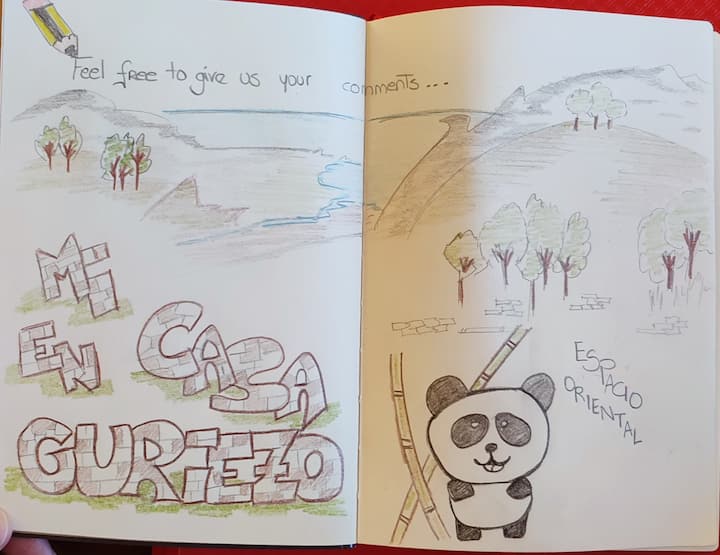 Feel free to give us your comments...
Mi CASA
EN
GURIEZO
ESPACIO
ORIENTAL